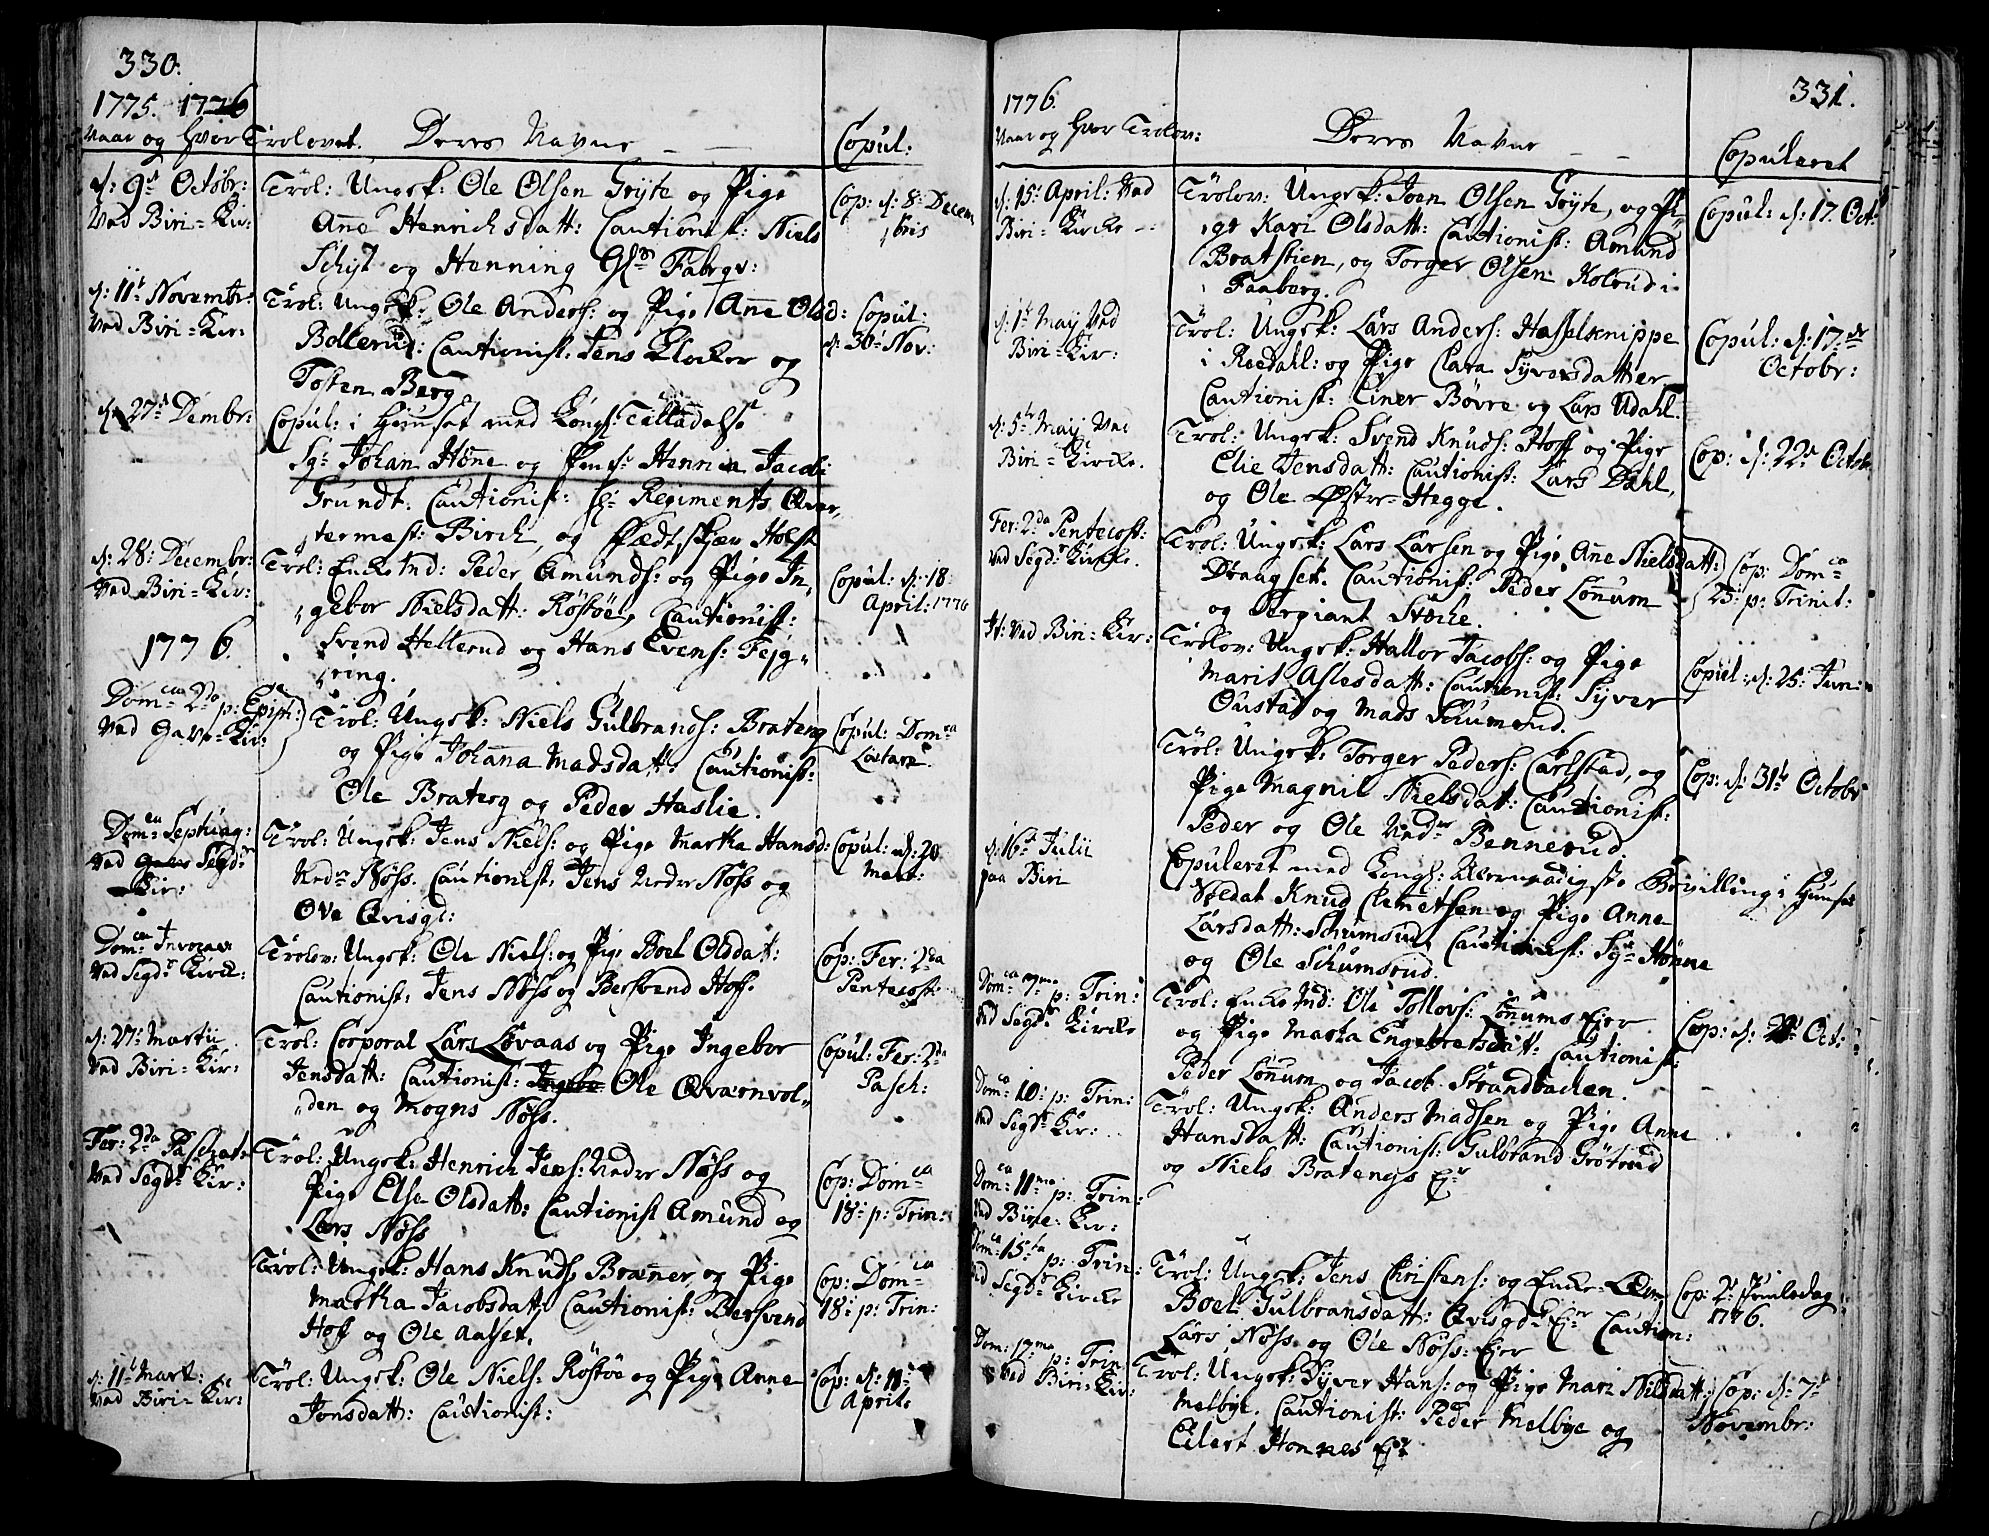 330.
1775. 1776
Naar og hvor Trolovet. Deres Navne
Copul:
d: 9de Octobr:
Ved Biri-Kir:
Trol: Ungsk: Ole Olsen Gryte og Pige
Anne Henrichsdatt: Cautionist: Niels
Schist og Henning Gl: Fabrqv:
Cop: d: 8: Decem
bris
d: 11t Novembr:
Ved Biri-Kir:
Trol: Ungsk: Ole Anders: og Pige Anne Olsd:
Bollerud: Cautionist: Jens Klocker og
Tosten Berg
Copul:
d: 30 Nov:
d. 27d Dembr:
Copul: i Huuset med Kongl: Tilladelse
Sr. Johan Hønne og Henrica Jacobi
Grundt. Cautionist: Regiments Qvar,
termest: Birch, og Holst
d: 28: Decembr:
Ved Biri-Kir:
Trol: Enke Md: Peder Amunds: og Pige In,
gebor Nielsdatt: Røstøe, Cautionist:
Svend Hellerud og Hans Evens: Fejg,
ring.
Copul: d: 18:
April: 1776
1776.
Dom: 2da p: Epiph:
Ved Kir:
Trol: Ungsk: Niels Gulbrands: Brateng
og Pige Johanna Madsdatt: Cautionist:
Ole Braterg og Peder Haslie.
Copul: Dom:ca
Lætare.
Dom:ca Septuag:
Ved Segd:
Kir:
Trol: Ungsk: Jens Niels: og Pige Martha Hansd:
Nedre Nøss. Cautionist: Jens Nedre Nøss og
Ove Qvisgl:
Copul: d: 20
Mart:
Dom:ca Invocav
Ved Segd: Kirck:
Trolov: Ungsk: Ole Niels: og Pige Boel Olsdatt:
Cautionist: Jens Nøss og Bersvend Hof.
Cop: Fer: 2da
Pentecost:
d: 27: Martii
Ved Biri-Kir:
Trol: Corporal Lars Løvaas og Pige Ingebor
Jensdatt: Cautionist: Ole Qværnvol,
den og Mogns Nøss.
Copul: Fer: 2da
Pasch:
Fer: 2da Paschat:
Ved Segd: Kir:
Trol: Ungsk: Henrich Jens: Nedre Nøss og
Pige Else Olsdatt: Cautionist Amund og
Lars Nøss
Cop: Dom:ca
18: p: Trin:
Trol: Ungsk: Hans Knuds: Brænner og Pige
Martha Jacobsdatt: Cautionist: Bersvend
Hof og Ole Aalset.
Cop: Dom:ca
18: p: Trin:
d: 11t Mart:
Ved Biri-Kir:
Trol: Ungsk: Ole Niels: Røstøe og Pige Anne
Jonsdatt: Cautionist:
Cop: d: 11:
April:
1776.
331.
Naar og hvor Trolov:
Deres Navne
Copuleret
d: 15: April: Ved
Biri-Kircke
Trolov: Ungsk: Joen Olsen Gryte, og Pi,
ge Kari Olsdatt: Cautionist: Amund
Bratstien, og Torger Olsen Kolrud i
Faaberg.
Copul: d: 17. Oct:
d: 1t Maij Ved
Biri-Kir:
Trol: Ungsk: Lars Anders: Hasselknippe
i Roedahl: og Pige Clara Syversdatter
Cautionist: Einer Bøvre og Lars Udahl.
Copul: d: 17:de
Octobr:
d: 5t Maij Ved
Biri-Kircke.
Trol: Ungsk: Svend Knuds: Hoff og Pige
Elie Jensdatt: Cautionist: Lars Dahl,
og Ole Østre-Hegge.
Cop: d: 22d Octob
Fer: 2da Pentecost:
Ved Segd: Kircke.
Trol: Ungsk: Lars Larsen og Pige Anne Nielsdatt:
Draagset. Cautionist: Peder Lonum
og Sergiant Støcke.
Cop: Dom:ca
23: p: Trinit:
It: Ved Biri-Kir:
Trolov: Ungsk: Hallor Jacobs: og Pige
Marit Aslesdatt: Cautionist: Syver
Oustad og Mads Skumrud.
Copul: d: 25: Jun:
Trol: Ungsk: Torger Peders: Carlstad, og
Pige Magnil Nielsdatt: Cautionist:
Peder og Ole Nedre Bennerud.
Cop: d: 31t Octobr
d: 16t Julii
paa Biri
Copuleret med Kongl: Allernaadigste Bevilling i Huuset
Soldat Knud Clemetsen og Pige Anne
Larsdatt: Schumsrud, Cautionist: Sr. Hønne
og Ole Schumsrud.
Dom:ca 7me p: Trin:
Ved Segd: Kircke
Trol: Enke Md: Ole Tollovs: Lonums Ejer
og Pige Martha Engebretsdatt: Cautionist:
Peder Lonum og Jacob Strandbacken.
Cop: d: Oct:
Dom:ca 10: p: Trin:
Ved Segd: Kir:
Trol: Ungsk: Anders Madsen og Pige Anne
Hansdatt: Cautionist: Gulbrand Grøtrud
og Niels Bratengs Ejr
Dom:ca 11me p: Trin:
Ved Birie-Kir:
Dom:ca 15: p: Trin:
Ved Segd: Kircke
Trol: Ungsk: Jens Christens: og Enke-
Boel Gulbransdatt: Qvisgd: Ejr Caution:
Lars Nøss og Ole Nøss: Ejer
Cop: 2: Juuledag
1776.
Dom: 17me p: Trin
Ved Biri-Kir:
Trol: Ungsk: Syver Hans: og Pige Mari Nilsdatt:
Melbye. Cautionist: Peder Melbye og
Eilert Honnes Ejr
Cop: d: 7t
Novembr: